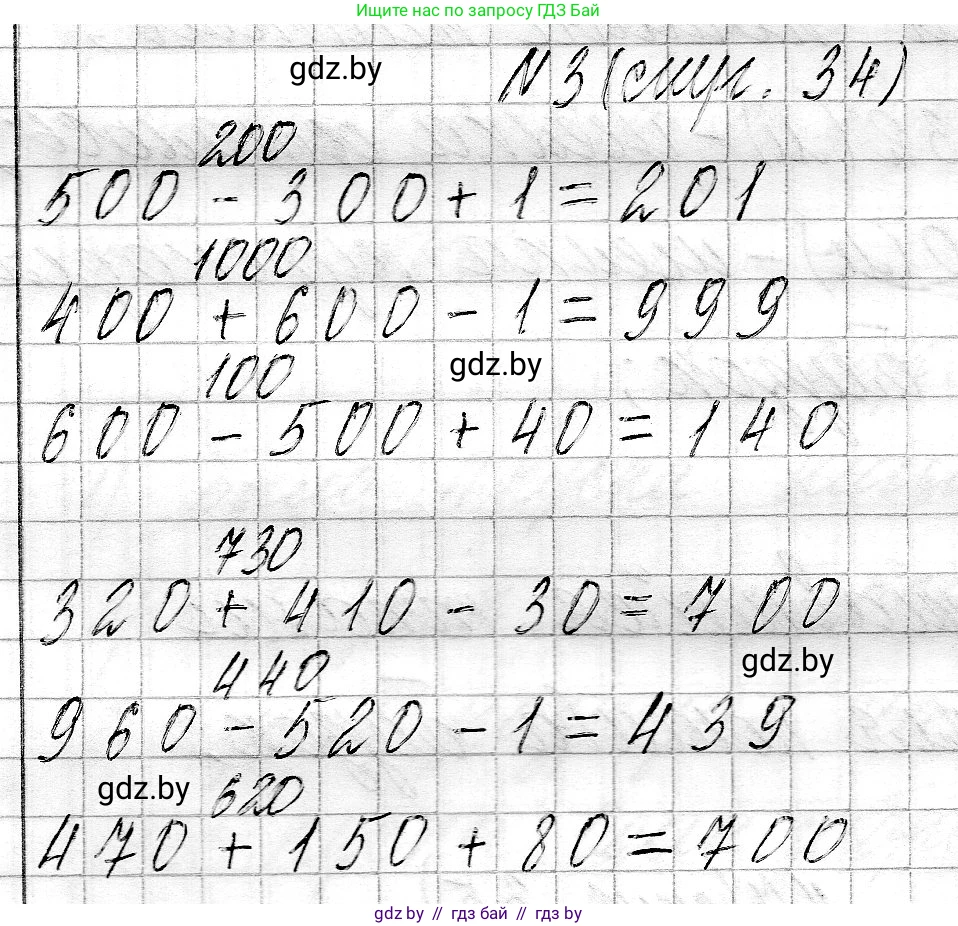 Ищите нас по запросу ГДЗ Бай
gdz.by
№3 (стр. 34)
200
500 - 300 + 1 = 201
1000
400 + 600 - 1 = 999
gdz.by
100
600 - 500 + 40 = 140
730
320 + 410 - 30 = 700
440
gdz.by
960 - 520 - 1 = 439
gdz.by
620
470 + 150 + 80 = 700
gdz.by // гдз бай // гдз by